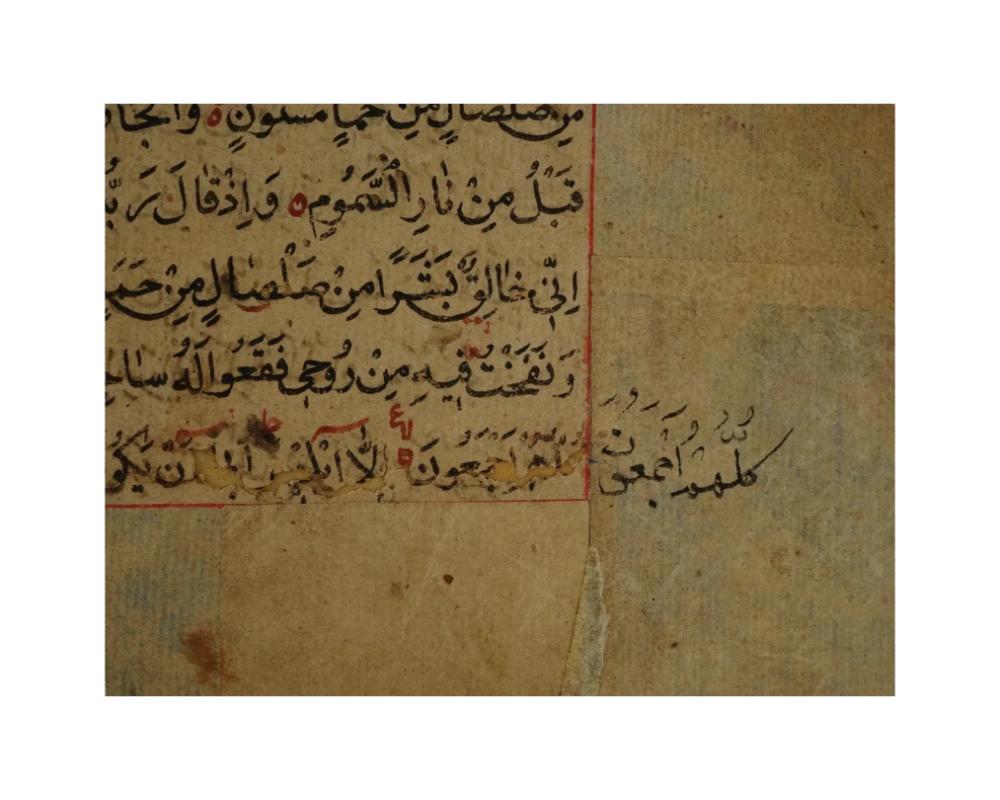 مِن صلصالٍ مِن حماٍ مسنونٍ ه والجا
قَبْلُ مِنْ نٰارِ السَّمُومِ ه وَاِذْقٰالَ رَبُّ
اِنّٖى خٰالِقٌ بَشَرًا مِنْ صَلْصٰالٍ مِنْ حَمَ
وَنَفَخْتُ فٖيهِ مِنْ رُوحٖى فَقَعُوا لَهُ ساج
كُلُّهُمْ اَجْمَعُونَ اِلّٰا اِبْلٖيسَ اَبٰى اَنْ يَكُو
كُلُّهُمْ اَجْمَعُونَ